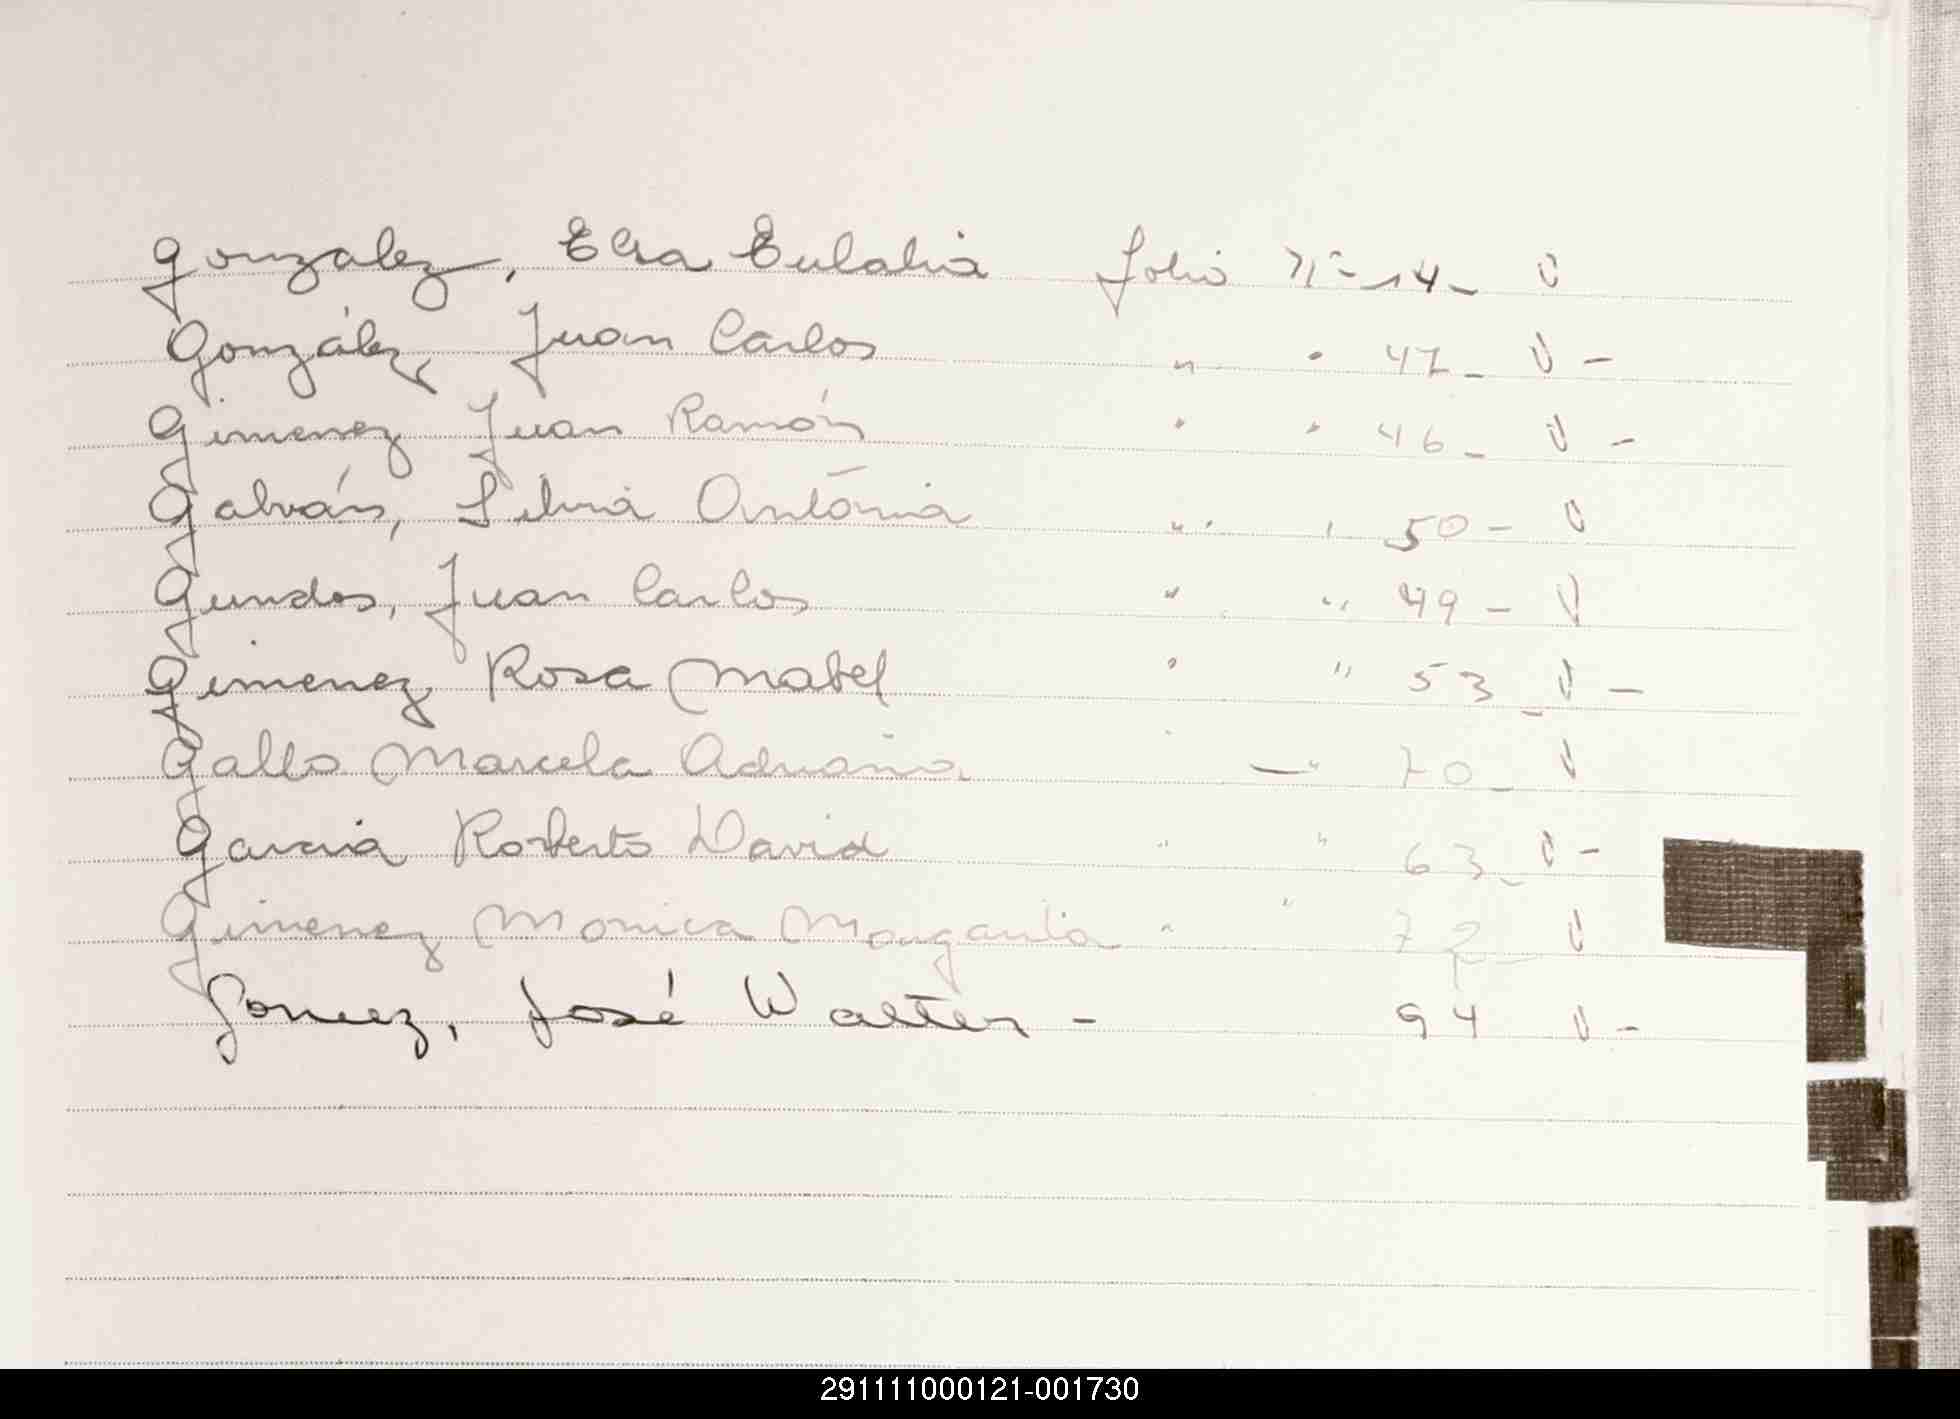 González, Elsa Eulalia folio Nº 14_ V
González, Juan Carlos " " 47_ V -
Gimenez Juan Ramón " " 46_ V -
Galván, Silvia Antonia " " 50 - V
Juan Carlos " " 49 - V
Gimenez Rosa Mabel " " 53_ V -
Gallo Marcela Adriana " — " 70_ V
Garcia Roberto David " " 63_ V -
Gimenez Monica Margarita " " 72_ V
Gomez, José Walter - 94 V -
291111000121-001730